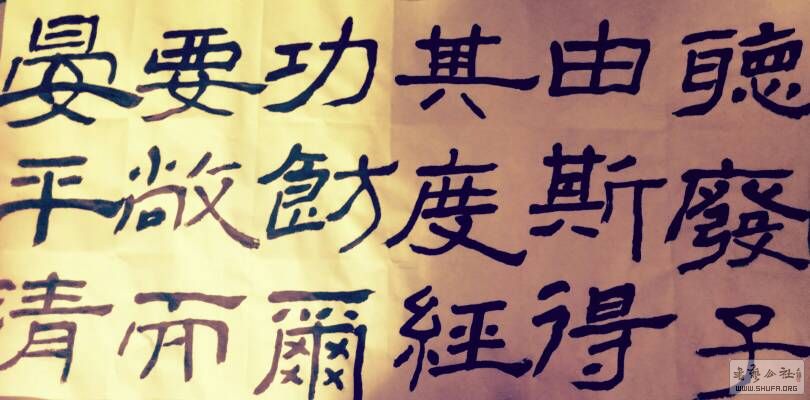 聽廢子
由斯得
其度經
功飭爾
要敞而
晏平清
書藝公社
WWW.SHUFA.ORG